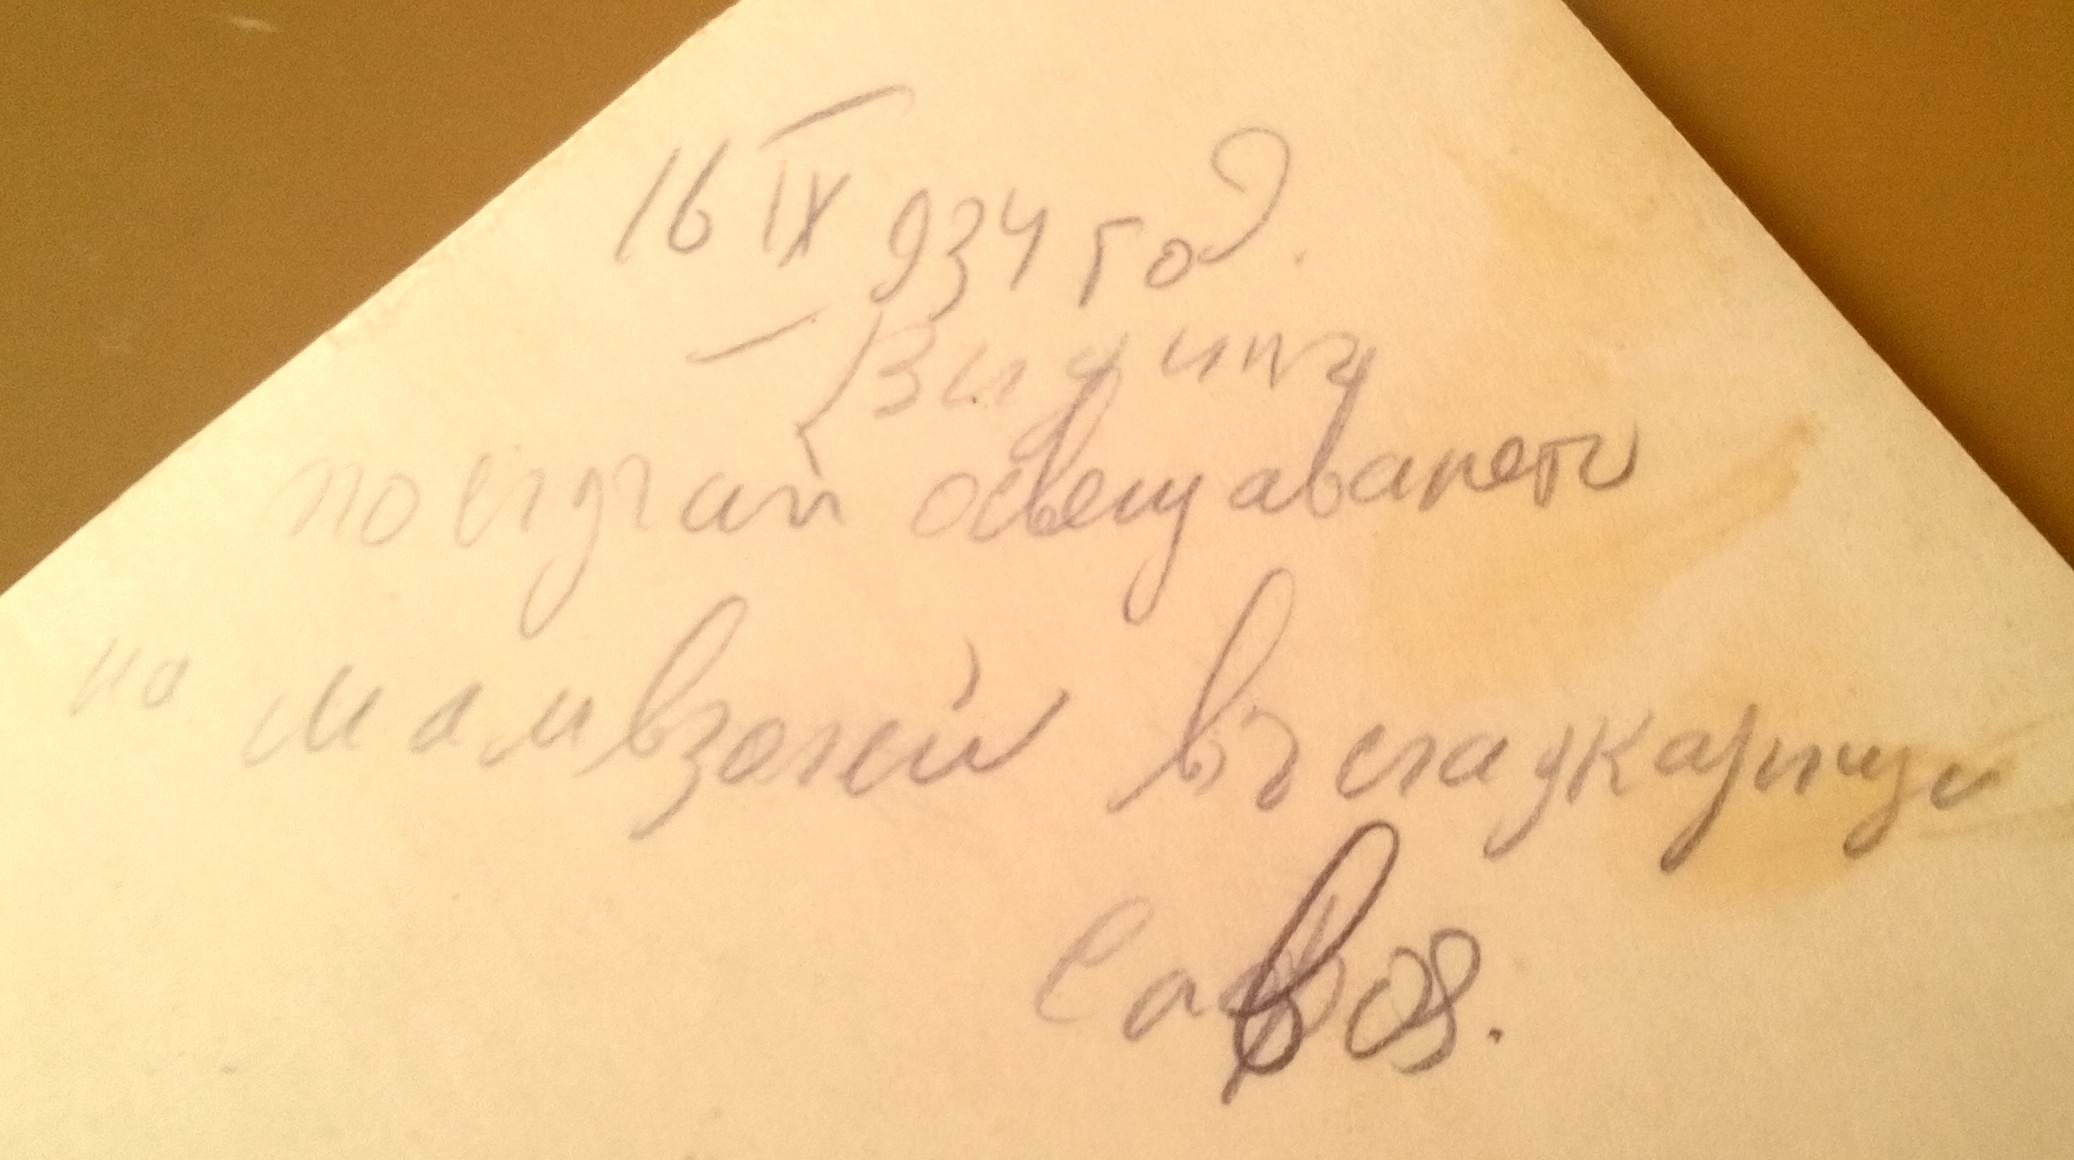 16 IX 934 год.
– Видинъ
по случай освещаванети
на мамвзолей въ сладкарницу
Савоя.